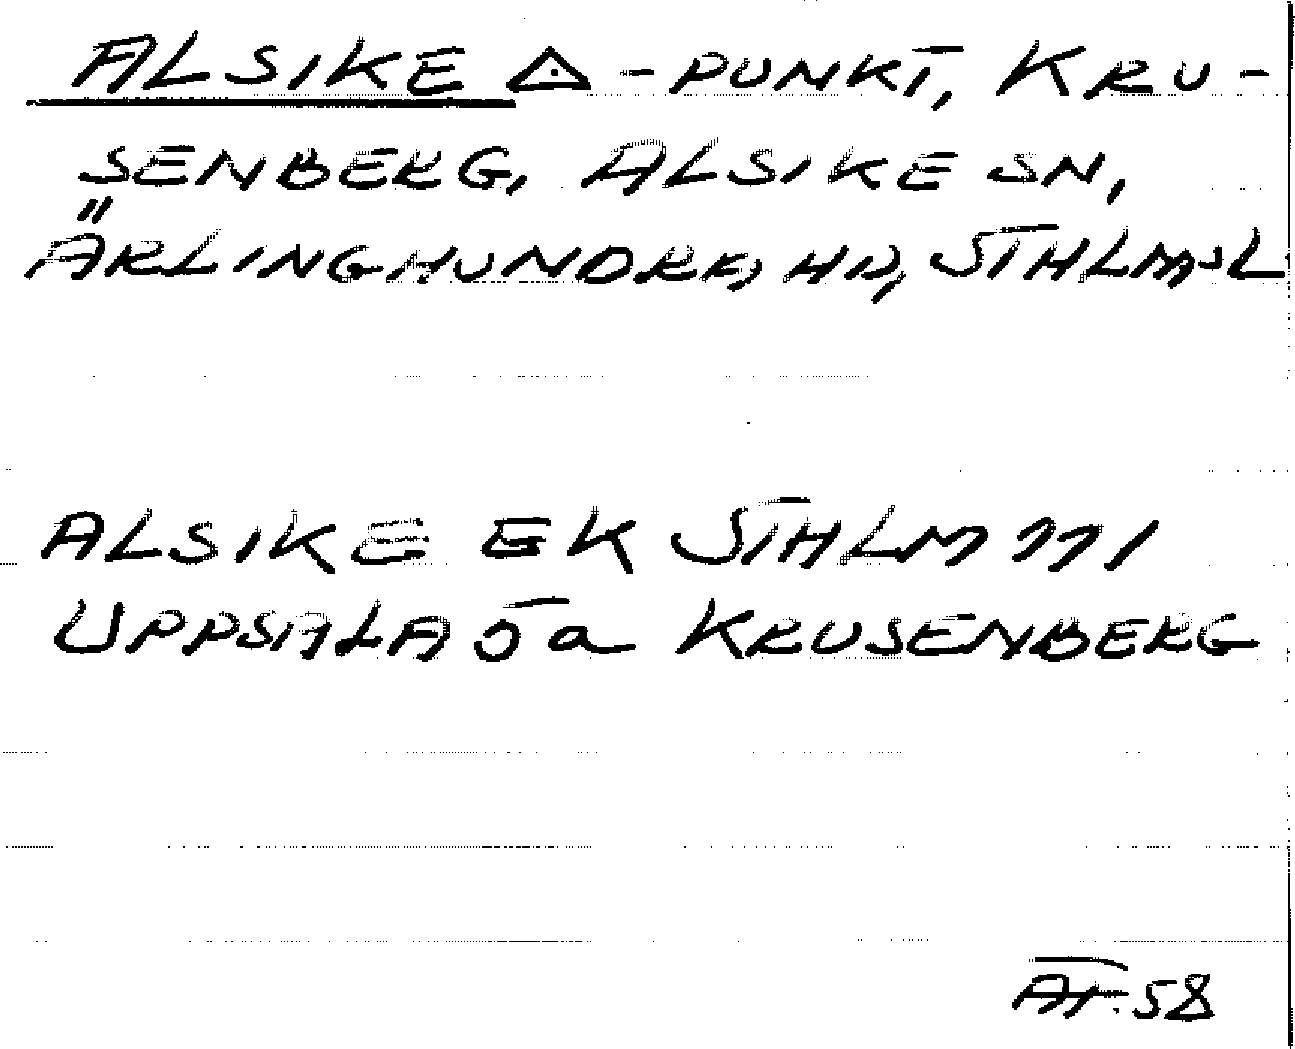 ALSIKE △-PUNKT, KRU-
SENBERG, ALSIKE SN,
ÄRLINGHUNDRA HD, STHLMSL
ALSIKE EK STHLM 111
UPPSALA 5a KRUSENBERG
AT.58